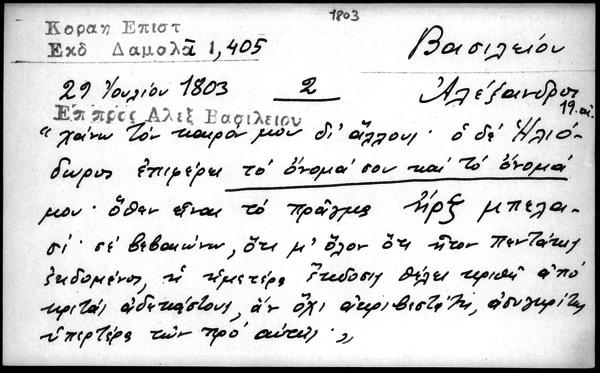 1803
Κοραη Επιστ
Εκδ Δαμολᾶ 1,405
Βασιλείου
29 Ἰουλίου 1803 2 Ἀλέξανδρος
19. αἰ.
Επ προς Αλεξ Βασιλειου
"χάνω τὸν καιρόν μου δι' ἄλλους· ὁ δὲ Ἡλιό-
δωρος ἐπιφέρει τὸ ὄνομά σου καὶ τὸ ὄνομά
μου· ὅθεν εἶναι τὸ πρᾶγμα μπελα-
σί· σὲ βεβαιώνω, ὅτι μ' ὅλον ὅτι ἦτον πεντάκις
ἐκδομένος, ἡ ἡμετέρα ἔκδοσις θέλει κριθῆ ἀπὸ
κριτὰς ἀδεκάστους, ἂν ὄχι ἀκριβεστάτη, ἀσυγκρίτως
ὑπερτέρα τῶν πρὸ αὐτῆς· "